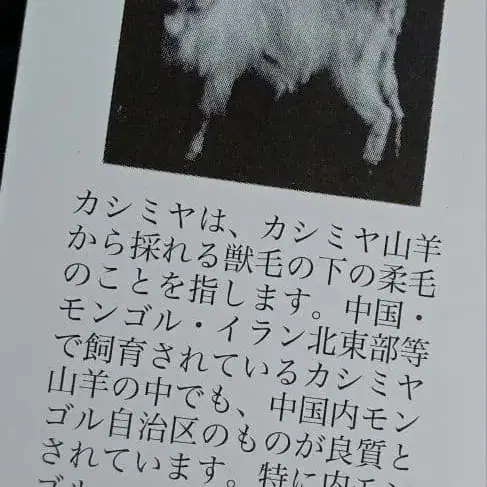 カシミヤは、カシミヤ山羊
から採れる獣毛の下の柔毛
のことを指します。中国・
モンゴル・イラン北東部等
で飼育されているカシミヤ
山羊の中でも、中国内モン
ゴル自治区のものが良質と
されています。特に内モン
ゴル